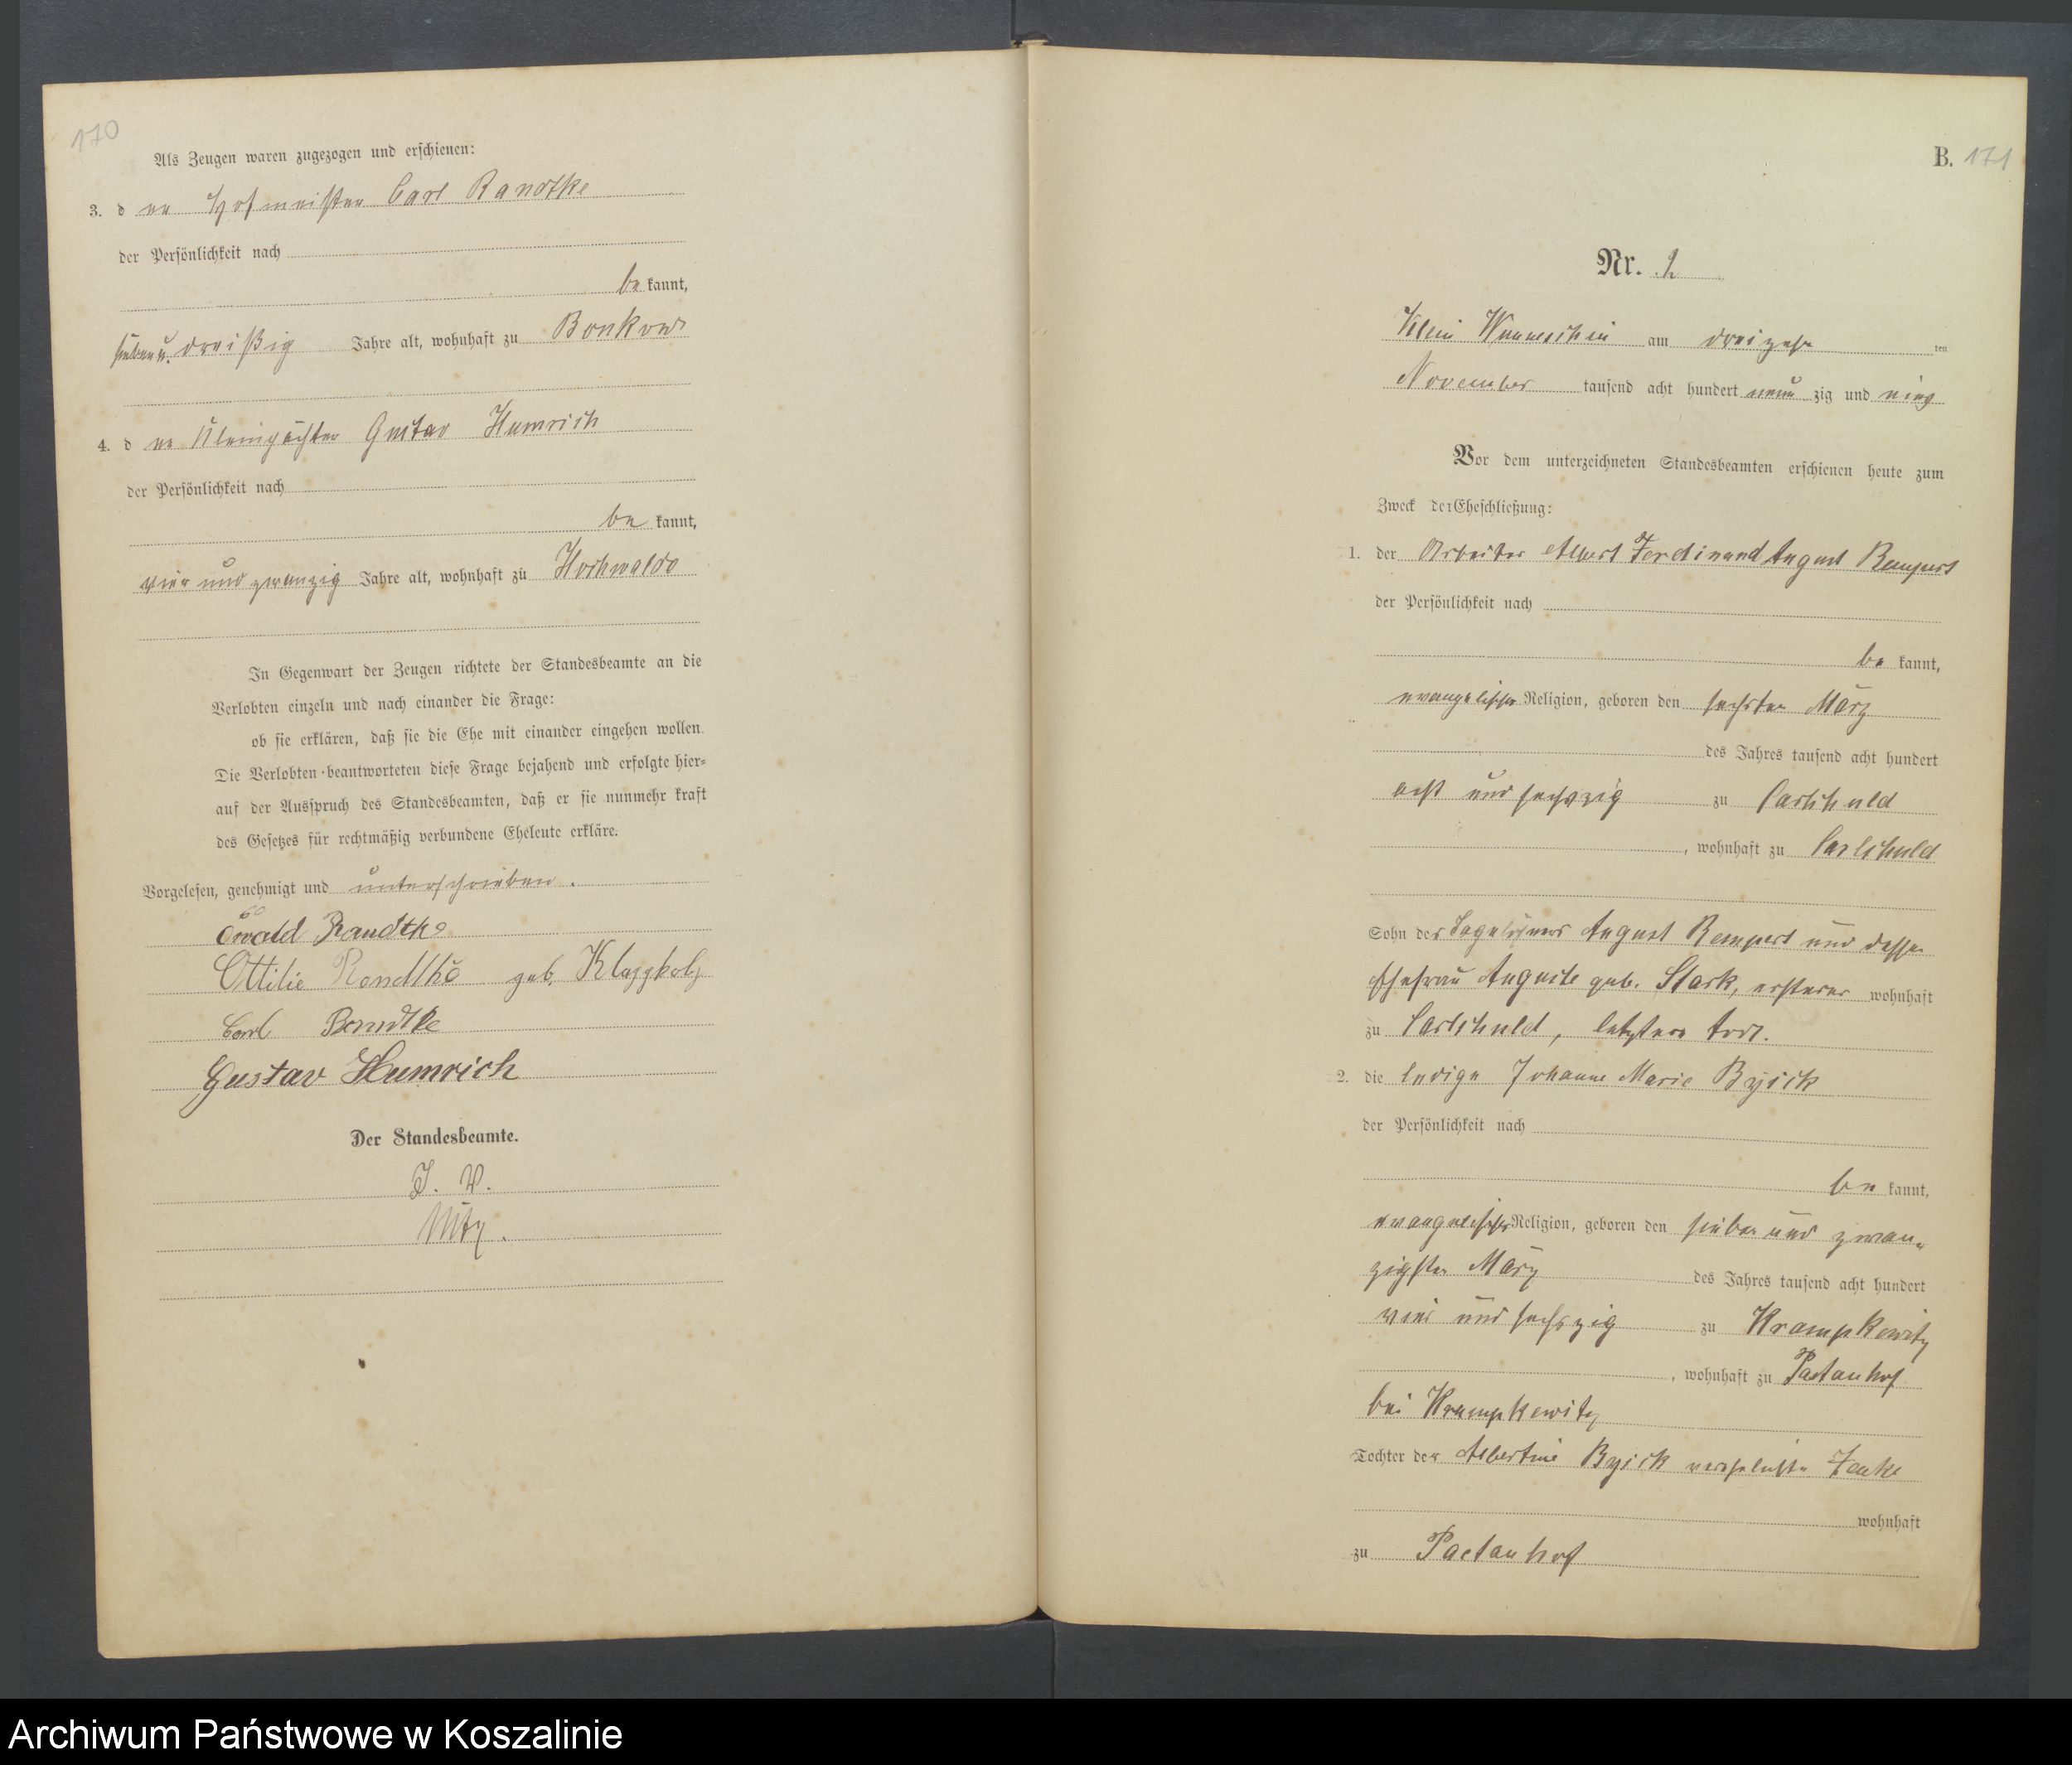 170
Als Zeugen waren zugezogen und erschienen:
3. d er Hofmeister Carl Randtke
der Persönlichkeit nach
be kannt,
sieben u. dreißig Jahre alt, wohnhaft zu Bonkow
4. d er Kleinpächter Gustav Humrich
der Persönlichkeit nach
be kannt,
vier und zwanzig Jahre alt, wohnhaft zu Hochwaldo
In Gegenwart der Zeugen richtete der Standesbeamte an die
Verlobten einzeln und nach einander die Frage:
ob sie erklären, daß sie die Ehe mit einander eingehen wollen.
Die Verlobten beantworteten diese Frage bejahend und erfolgte hier=
auf der Ausspruch des Standesbeamten, daß er sie nunmehr kraft
des Gesetzes für rechtmäßig verbundene Eheleute erkläre.
Vorgelesen, genehmigt und unterschrieben.
Ewald Randtke
Ottilie Randtke geb.
Carl Randtke
Gustav Humrich
Der Standesbeamte.
I. V.
B. 171
Nr.
Klein Wunneschin am dreizehn ten
November tausend acht hundert neun zig und eins
Vor dem unterzeichneten Standesbeamten erschienen heute zum
Zweck der Eheschließung:
1. der Arbeiter Albert Ferdinand August Rempert
der Persönlichkeit nach
be kannt,
evangelischer Religion, geboren den sechsten März
des Jahres tausend acht hundert
acht und sechszig zu Carlshuld
, wohnhaft zu Carlshuld
Sohn des Tagelöhners August Rempert und dessen
Ehefrau Auguste geb. Stark, ersterer wohnhaft
zu Carlshuld, letztere todt.
2. die ledige Johanne Marie Byick
der Persönlichkeit nach
be kannt,
evangelischer Religion, geboren den sieben und zwan=
zigsten März des Jahres tausend acht hundert
vier und sechszig zu Krampkewitz
, wohnhaft zu Paetanhof
bei Krampkewitz
Tochter der Albertine Byick verehelichte
wohnhaft
zu Paetanhof
Archiwum Państwowe w Koszalinie